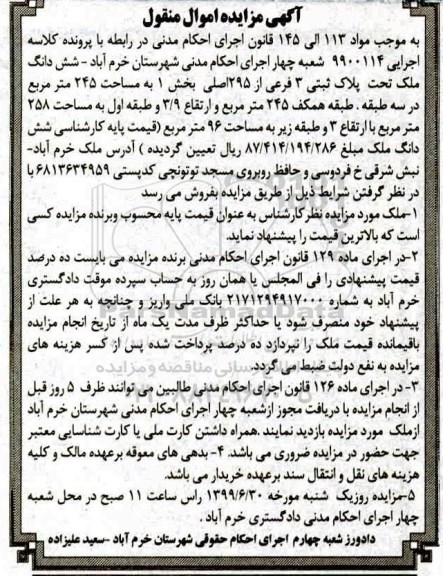 آگهی مزایده اموال منقول
به موجب مواد ۱۱۳ الی ۱۴۵ قانون اجرای احکام مدنی در رابطه با پرونده کلاسه
اجرایی ۹۹۰۰۱۱۴ شعبه چهار اجرای احکام مدنی شهرستان خرم آباد - شش دانگ
ملک تحت پلاک ثبتی ۳ فرعی از ۲۹۵اصلی بخش ۱ به مساحت ۲۴۵ متر مربع
در سه طبقه . طبقه همکف ۲۴۵ متر مربع و ارتفاع ۳/۹ و طبقه اول به مساحت ۲۵۸
متر مربع با ارتفاع ۳ و طبقه زیر به مساحت ۹۶ متر مربع (قیمت پایه کارشناسی شش
دانگ ملک مبلغ ۸۷/۴۱۴/۱۹۴/۲۸۶ ریال تعیین گردیده ) آدرس ملک خرم آباد-
نبش شرقی خ فردوسی و حافظ روبروی مسجد توتونچی کدپستی ۶۸۱۳۶۳۴۹۵۹ با
در نظر گرفتن شرایط ذیل از طریق مزایده بفروش می رسد
۱-ملک مورد مزایده نظر کارشناس به عنوان قیمت پایه محسوب وبرنده مزایده کسی
است که بالاترین قیمت را پیشنهاد نماید.
۲-در اجرای ماده ۱۲۹ قانون اجرای احکام مدنی برنده مزایده می بایست ده درصد
قیمت پیشنهادی را فی المجلس یا همان روز به حساب سپرده موقت دادگستری
خرم آباد به شماره ۲۱۷۱۲۹۴۹۱۷۰۰۰ بانک ملی واریز و چنانچه به هر علت از
پیشنهاد خود منصرف شود یا حداکثر ظرف مدت یک ماه از تاریخ انجام مزایده
باقیمانده قیمت ملک را نپردازد ده درصد پرداخت شده پس از کسر هزینه های
مزایده به نفع دولت ضبط می گردد.
۳- در اجرای ماده ۱۲۶ قانون اجرای احکام مدنی طالبین می توانند ظرف ۵ روز قبل
از انجام مزایده با دریافت مجوز ازشعبه چهار اجرای احکام مدنی شهرستان خرم آباد
ازملک مورد مزایده بازدید نمایند .همراه داشتن کارت ملی یا کارت شناسایی معتبر
جهت حضور در مزایده ضروری می باشد. ۴- بدهی های معوقه برعهده مالک و کلیه
هزینه های نقل و انتقال سند برعهده خریدار می باشد.
۵-مزایده روزیک شنبه مورخه ۱۳۹۹/۶/۳۰ راس ساعت ۱۱ صبح در محل شعبه
چهار اجرای احکام مدنی دادگستری خرم آباد .
دادورز شعبه چهارم اجرای احکام حقوقی شهرستان خرم آباد -سعید علیزاده